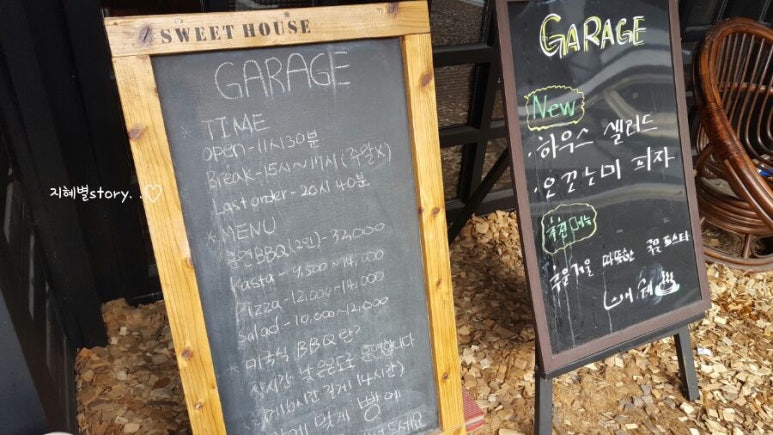 SWEET HOUSE
GARAGE
* TIME
Open - 11시30분
Break - 15시~17시 (주말X)
Last order - 20시 40분
* MENU
훈연BBQ(2인) - 32,000
Pasta - 9,500~14,000
Pizza - 12,000~14,000
Salad - 10,000~12,000
* 미국식 BBQ란?
장시간 낮은온도로 훈연합니다
6시간 길게 14시간)
맞게 빵에
드세요
지혜별story..♡
GARAGE
New
· 하우스 샐러드
· 오꼬노미 피자
추천메뉴
추운겨울 따뜻한 국물 파스타